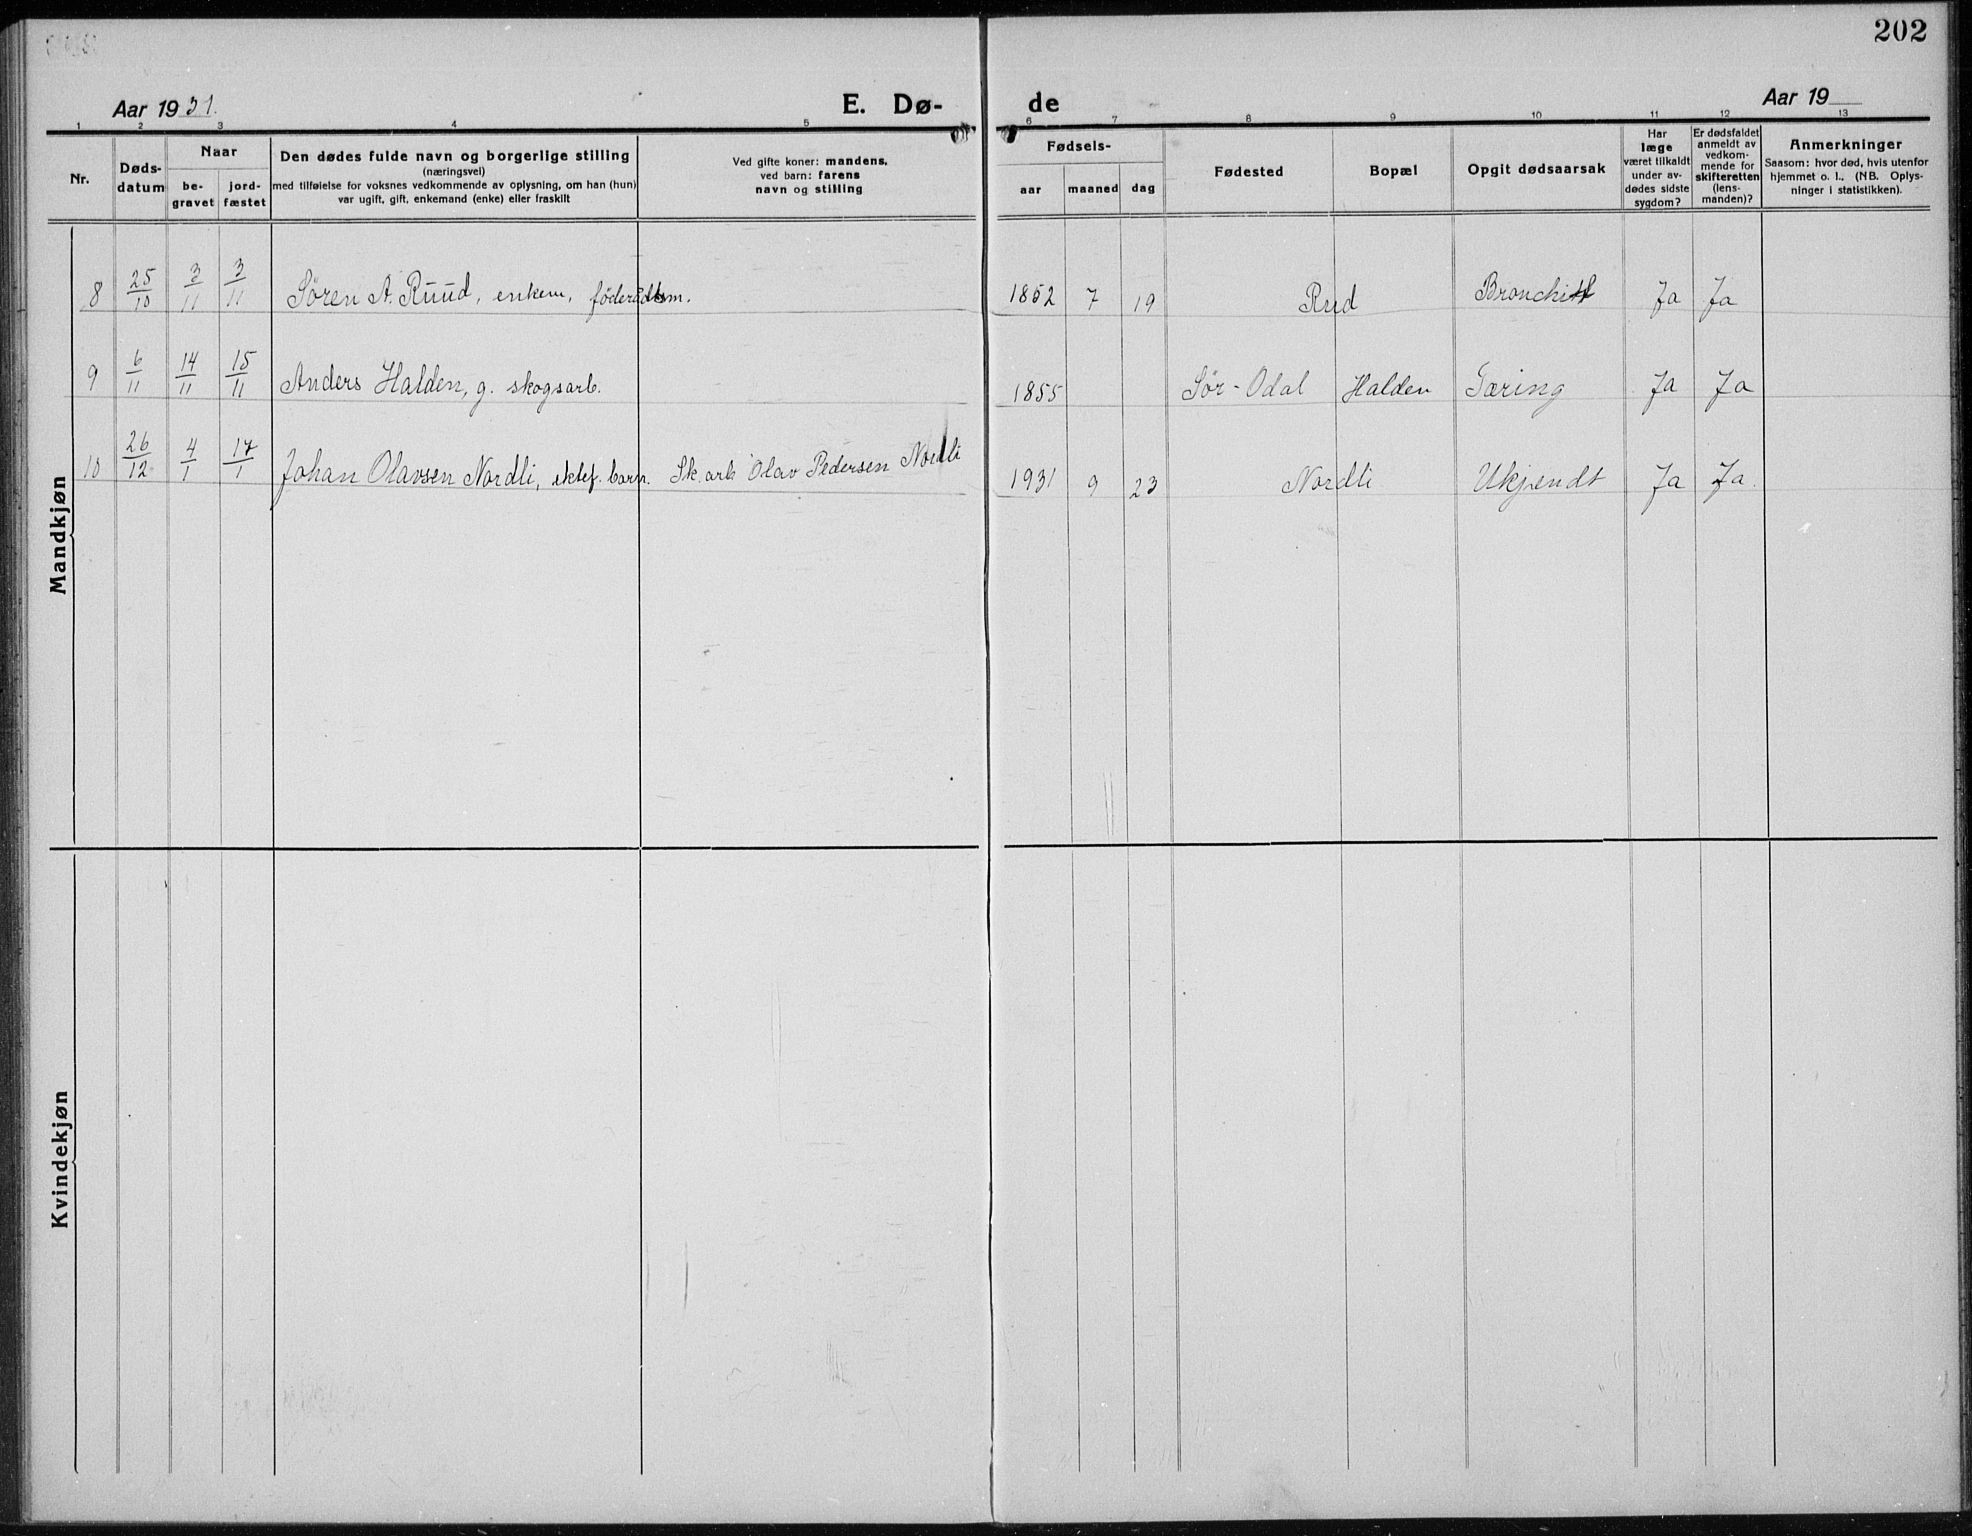 202
Aar 1931.
E. Dø-
de
Aar 19
1 2 3 4 5 6 7 8 9 10 11 12 13
Nr.
Døds-
datum
Naar
be-
gravet
jord-
fæstet
Den dødes fulde navn og borgerlige stilling
(næringsvei)
med tilføielse for voksnes vedkommende av oplysning, om han (hun)
var ugift, gift, enkemand (enke) eller fraskilt
Ved gifte koner: mandens,
ved barn: farens
navn og stilling
Fødsels-
aar maaned dag
Fødested
Bopæl
Opgit dødsaarsak
Har
læge
været tilkaldt
under av-
dødes sidste
sygdom?
Er dødsfaldet
anmeldt av
vedkom-
mende for
skifteretten
(lens-
manden)?
Anmerkninger
Saasom: hvor død, hvis utenfor
hjemmet o. l., (NB. Oplys-
ninger i statistikken).
Mandkjøn
8 25/10 3/11 3/11 Søren A. Ruud, enkem, føderådsm. 1852 7 19 Rud Bronchitt Ja Ja
9 6/11 14/11 15/11 Anders Halden, g. skogsarb. 1855 Sør-Odal Halden Tæring Ja Ja
10 26/12 4/1 17/1 Johan Olavsen Nordli, ektef. barn. Sk. arb. Olav Pedersen Nordli 1931 9 23 Nordli Ukjendt Ja Ja.
Kvindekjøn